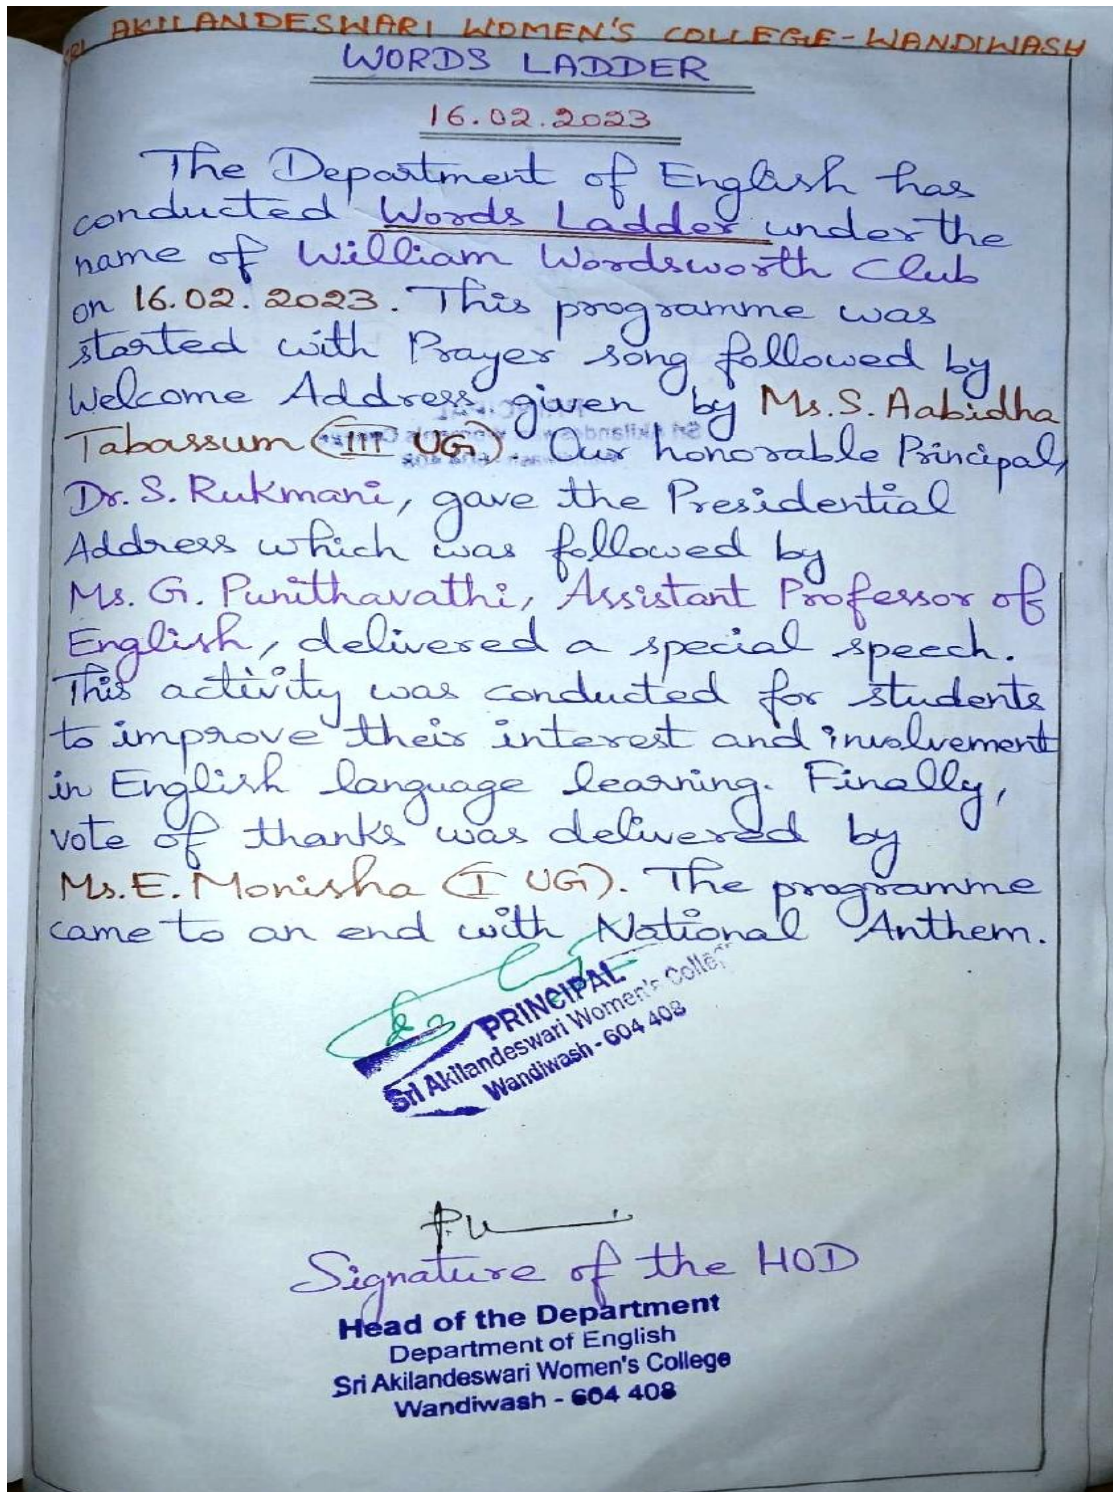 SRI AKILANDESWARI WOMEN'S COLLEGE-WANDIWASH
WORDS LADDER
16.02.2023
The Department of English has
conducted Words Ladder under the
name of William Wordsworth Club
on 16.02.2023. This programme was
started with Prayer song followed by
Welcome Address given by Ms.S. Aabidha
Tabassum (III UG). Our honorable Principal,
Dr. S. Rukmani, gave the Presidential
Address which was followed by
Ms. G. Punithavathi, Assistant Professor of
English, delivered a special speech.
This activity was conducted for students
to improve their interest and involvement
in English language learning. Finally,
vote of thanks was delivered by
Ms.E. Monisha (I UG). The programme
came to an end with National Anthem.
PRINCIPAL
Sri Akilandeswari Women's College
Wandiwash - 604 408
Signature of the HOD
Head of the Department
Department of English
Sri Akilandeswari Women's College
Wandiwash - 604 408